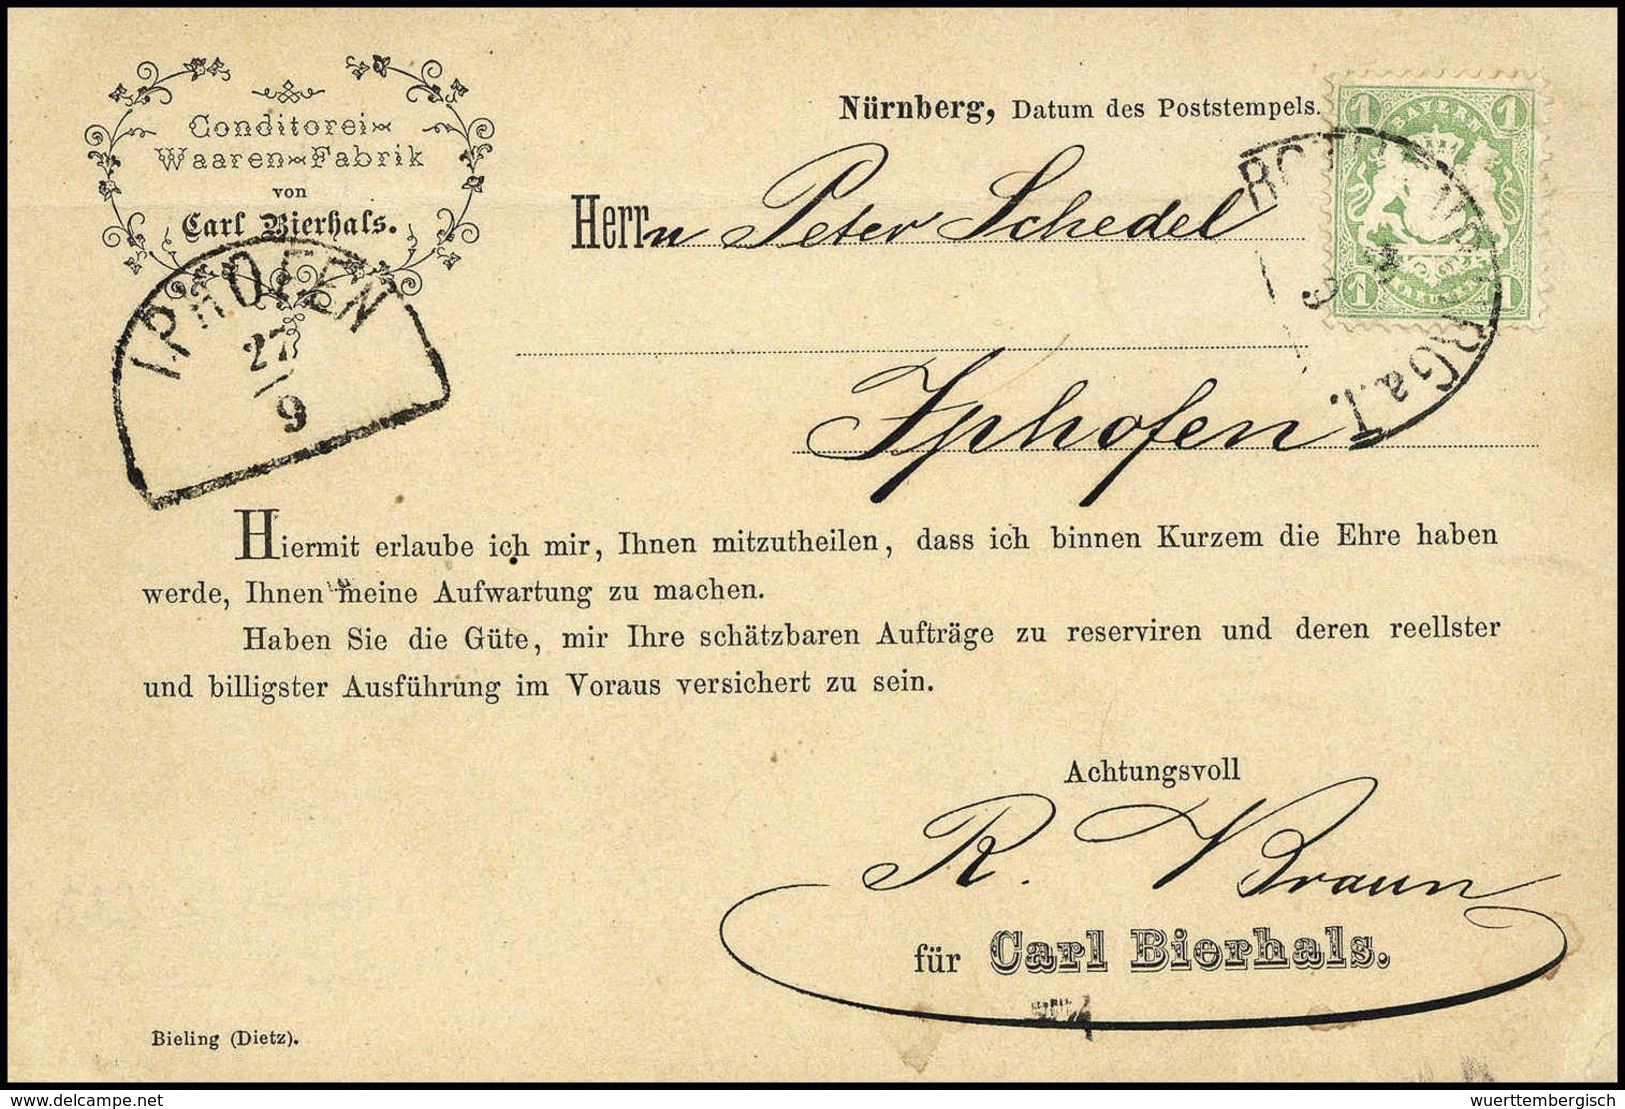 Conditorei-
Waaren-Fabrik
von
Carl Bierhals.
Nürnberg, Datum des Poststempels.
1 BAYERN 1
1 KREUZER 1
Herrn Peter Schedel
Iphofen
IPHOFEN
27/9
RG a.T.
Hiermit erlaube ich mir, Ihnen mitzutheilen, dass ich binnen Kurzem die Ehre haben
werde, Ihnen meine Aufwartung zu machen.
Haben Sie die Güte, mir Ihre schätzbaren Aufträge zu reserviren und deren reellster
und billigster Ausführung im Voraus versichert zu sein.
Achtungsvoll
R. Braun
für Carl Bierhals.
Bieling (Dietz).
www.delcampe.net
wuerttembergisch